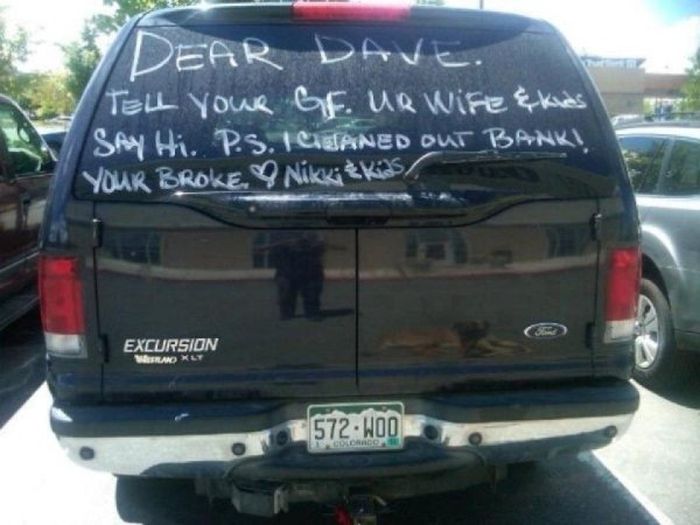 DEAR DAVE.
TELL YOUR GF. UR WIFE & kids
SAY Hi. P.S. I CLEANED OUT BANK!
YOUR BROKE. ♡ Nikki & kids
EXCURSION
XLT
Ford
572·WOO
COLORADO